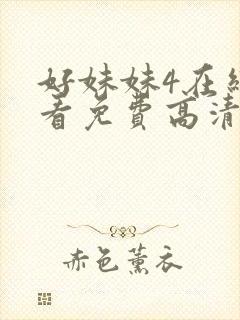 好妹妹4在线
看免费高清
赤色薰衣